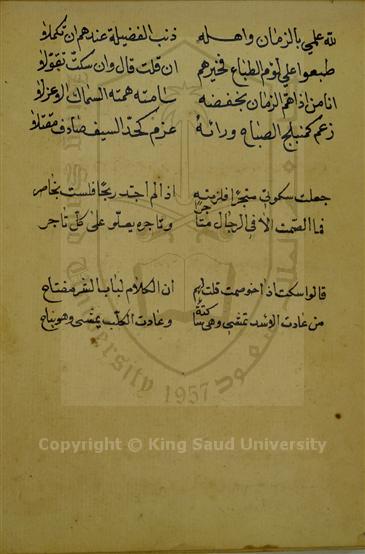 لله علمي بالزمان واهله ذنب الفضيلة عندهم ان تكملا
طبعوا علي لوم الطباع فخيرهم ان قلت قال وان سكت تقولا
انا من اذا هم الزمان بخفضه سامته همته السماك الاعزلا
زعم كمنبلج الصباح ورائه عزم كحد السيف صادف مقتلا
جعلت سكوتي متجرا فلزمته اذا لم اجد ربحا فلست بخاسر
فما الصمت الا في الرجال متاجر وتاجره يعلو على كل تاجر
قالوا سكت اذا خوصمت قلت لهم ان الكلام لباب الشر مفتاح
من عادت الاسد تمشي وهي ساكتة وعادت الكلب يمشي وهو نباح
King Saud University
1957
Copyright © King Saud University